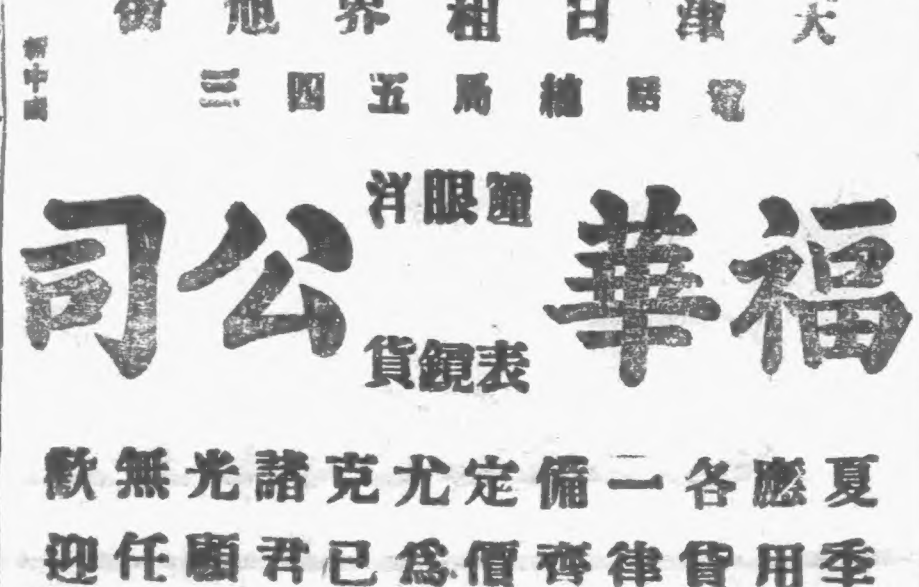 天津日租界旭街
電話總局五四三
新中國
福華
鐘表
眼鏡
洋貨
公司
夏季
應用
各貨
一律
備齊
定價
尤爲
克已
諸君
光顧
無任
歡迎